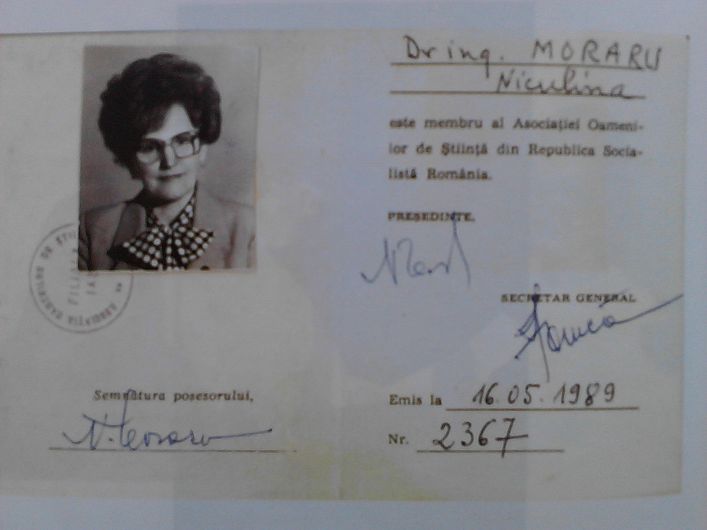 Dr ing. MORARU
Niculina
este membru al Asociației Oameni-
lor de Știință din Republica Socia-
listă România.
PREȘEDINTE,
SECRETAR GENERAL
Semnătura posesorului,
Emis la 16.05.1989
Nr. 2367